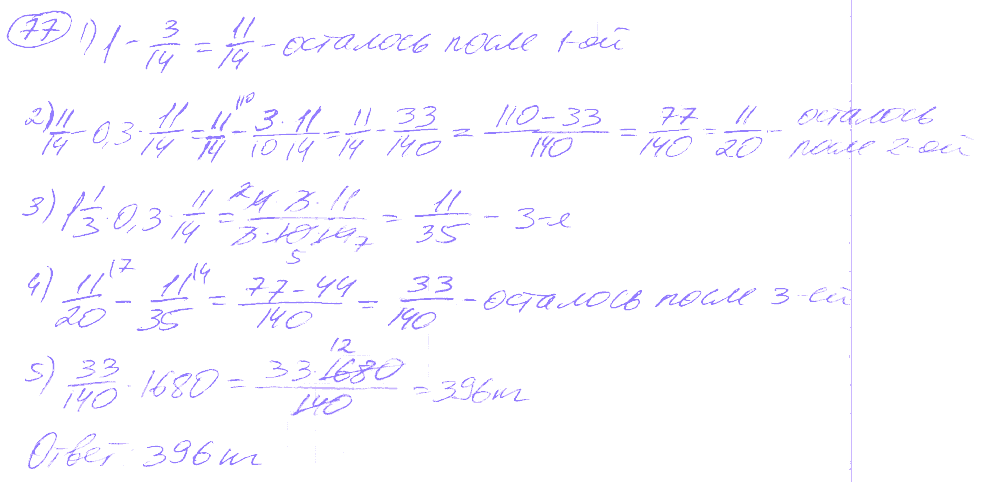 77 1) 1 - 3/14 = 11/14 - осталось после 1-ой
2) 11/14 - 0,3 · 11/14 = 11/14 \110 - 3·11/10·14 = 11/14 - 33/140 = 110-33/140 = 77/140 = 11/20 - осталось после 2-ой
3) 1 1/3 · 0,3 · 11/14 = 2 4·3·11/3·10·14 5 7 = 11/35 - 3-я
4) 11/20 \7 - 11/35 \4 = 77-44/140 = 33/140 - осталось после 3-ей
5) 33/140 · 1680 = 33·1680/140 12 = 396 кг
Ответ: 396 кг